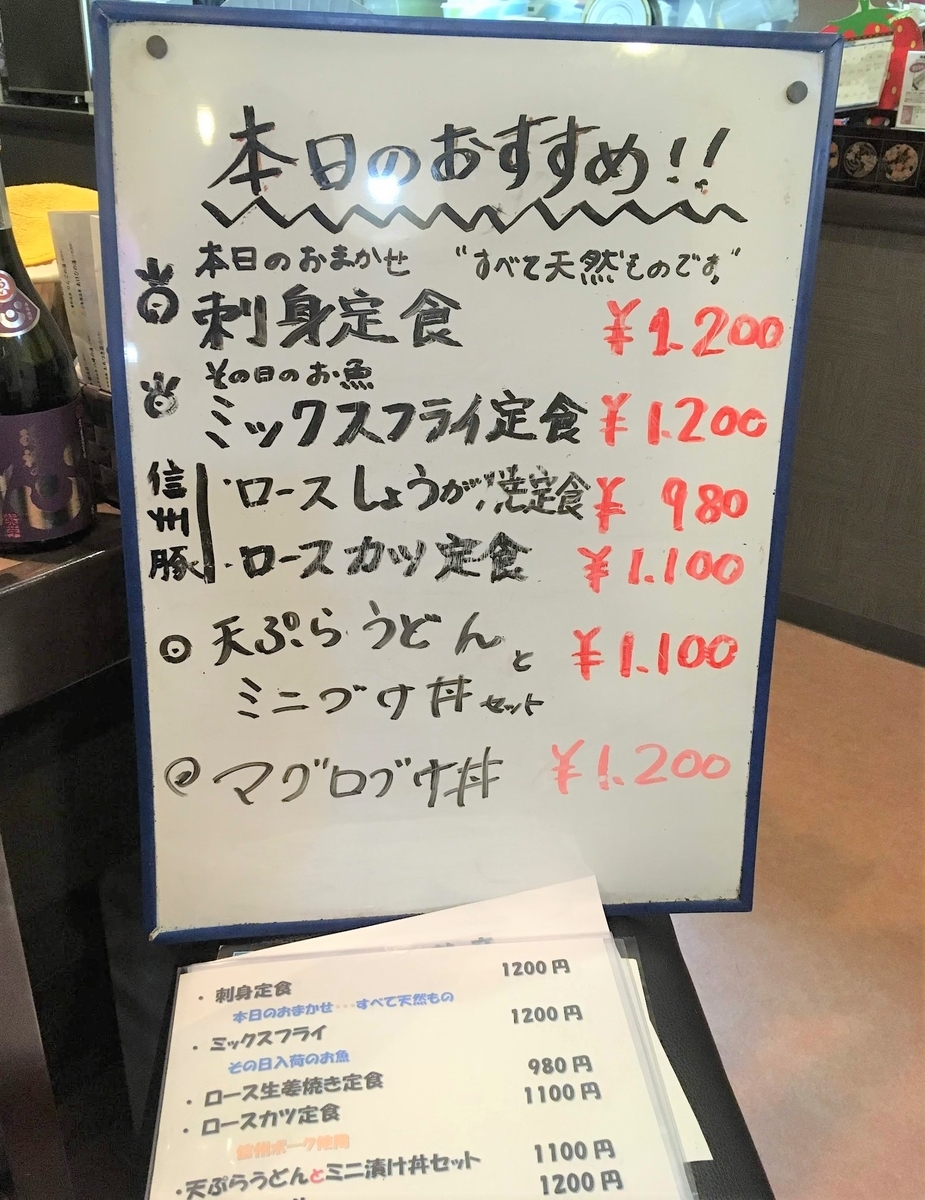 本日のおすすめ!!
本日のおまかせ "すべて天然ものです"
刺身定食 ¥1.200
その日のお魚
ミックスフライ定食 ¥1.200
信州豚
・ロースしょうが焼定食 ¥980
・ロースカツ定食 ¥1.100
天ぷらうどんと ¥1.100
ミニヅケ丼セット
マグロヅケ丼 ¥1.200
・刺身定食 1200円
本日のおまかせ・・・すべて天然もの
・ミックスフライ 1200円
その日入荷のお魚
・ロース生姜焼き定食 980円
・ロースカツ定食 1100円
・天ぷらうどんとミニ漬け丼セット 1100円
1200円